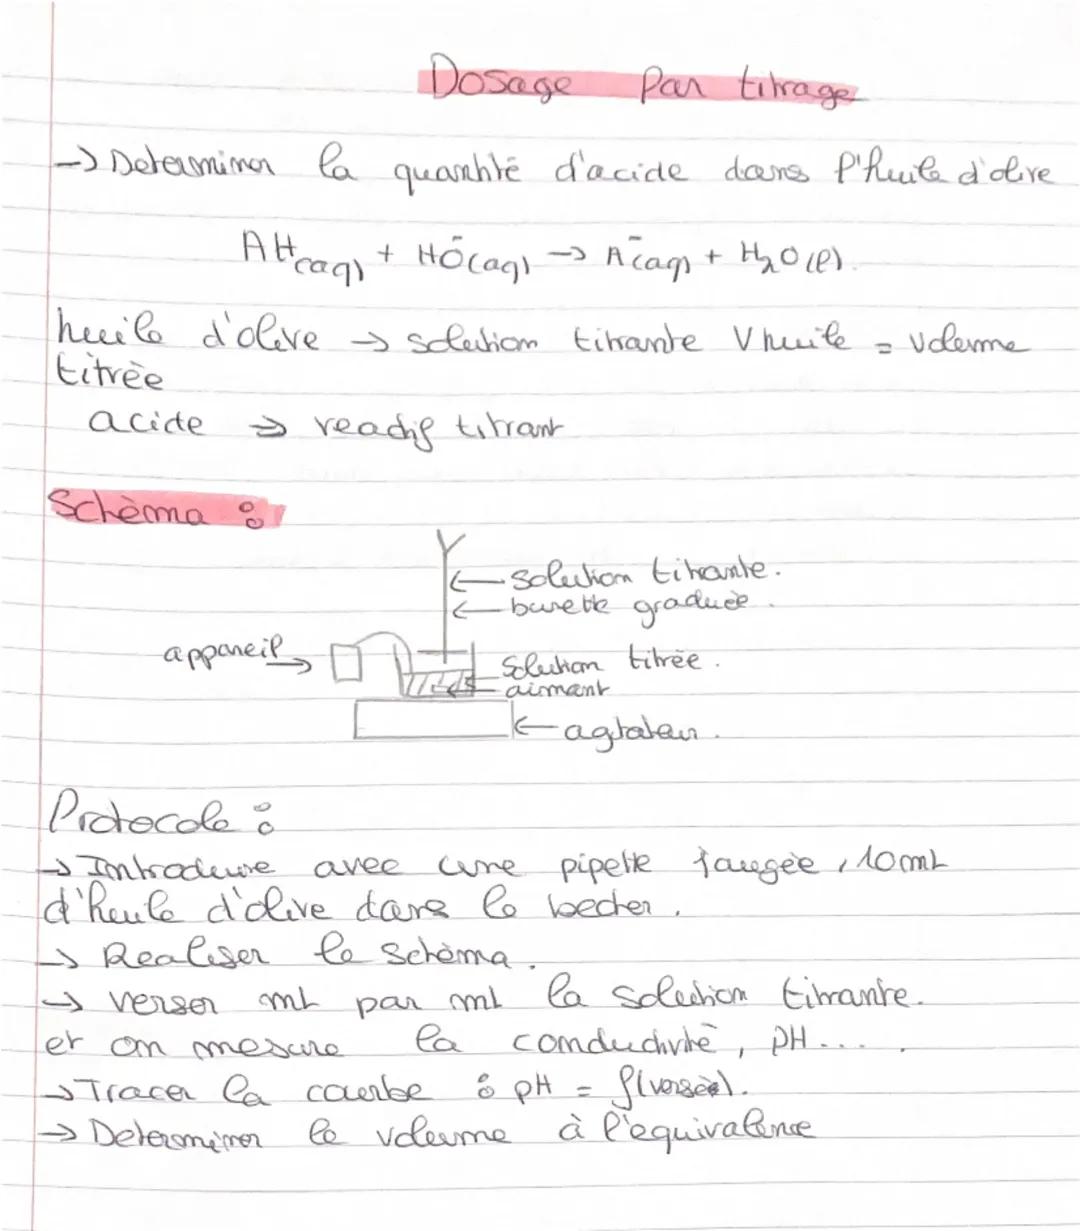 Dosage par titrage
→ Determiner la quantité d'acide dans l'huile d'olive
AH(aq) + HO⁻(aq) → A⁻(aq) + H₂O(l).
huile d'olive → solution titrante Vhuile = volume
titrèe
acide → reactif titrant
Schèma :
← solution titrante.
← burette graduèe.
appareil →
solution titrèe.
← aimant
← agtateur.
Protocole :
→ Introduire avec une pipette jaugèe, 10 mL
d'huile d'olive dans le becher.
→ Realiser le schèma.
→ verser mL par mL la solution titrante.
et on mesure la conductivitè, PH....
→ Tracer la courbe : pH = f(versèe).
→ Determiner le volume à l'equivalence